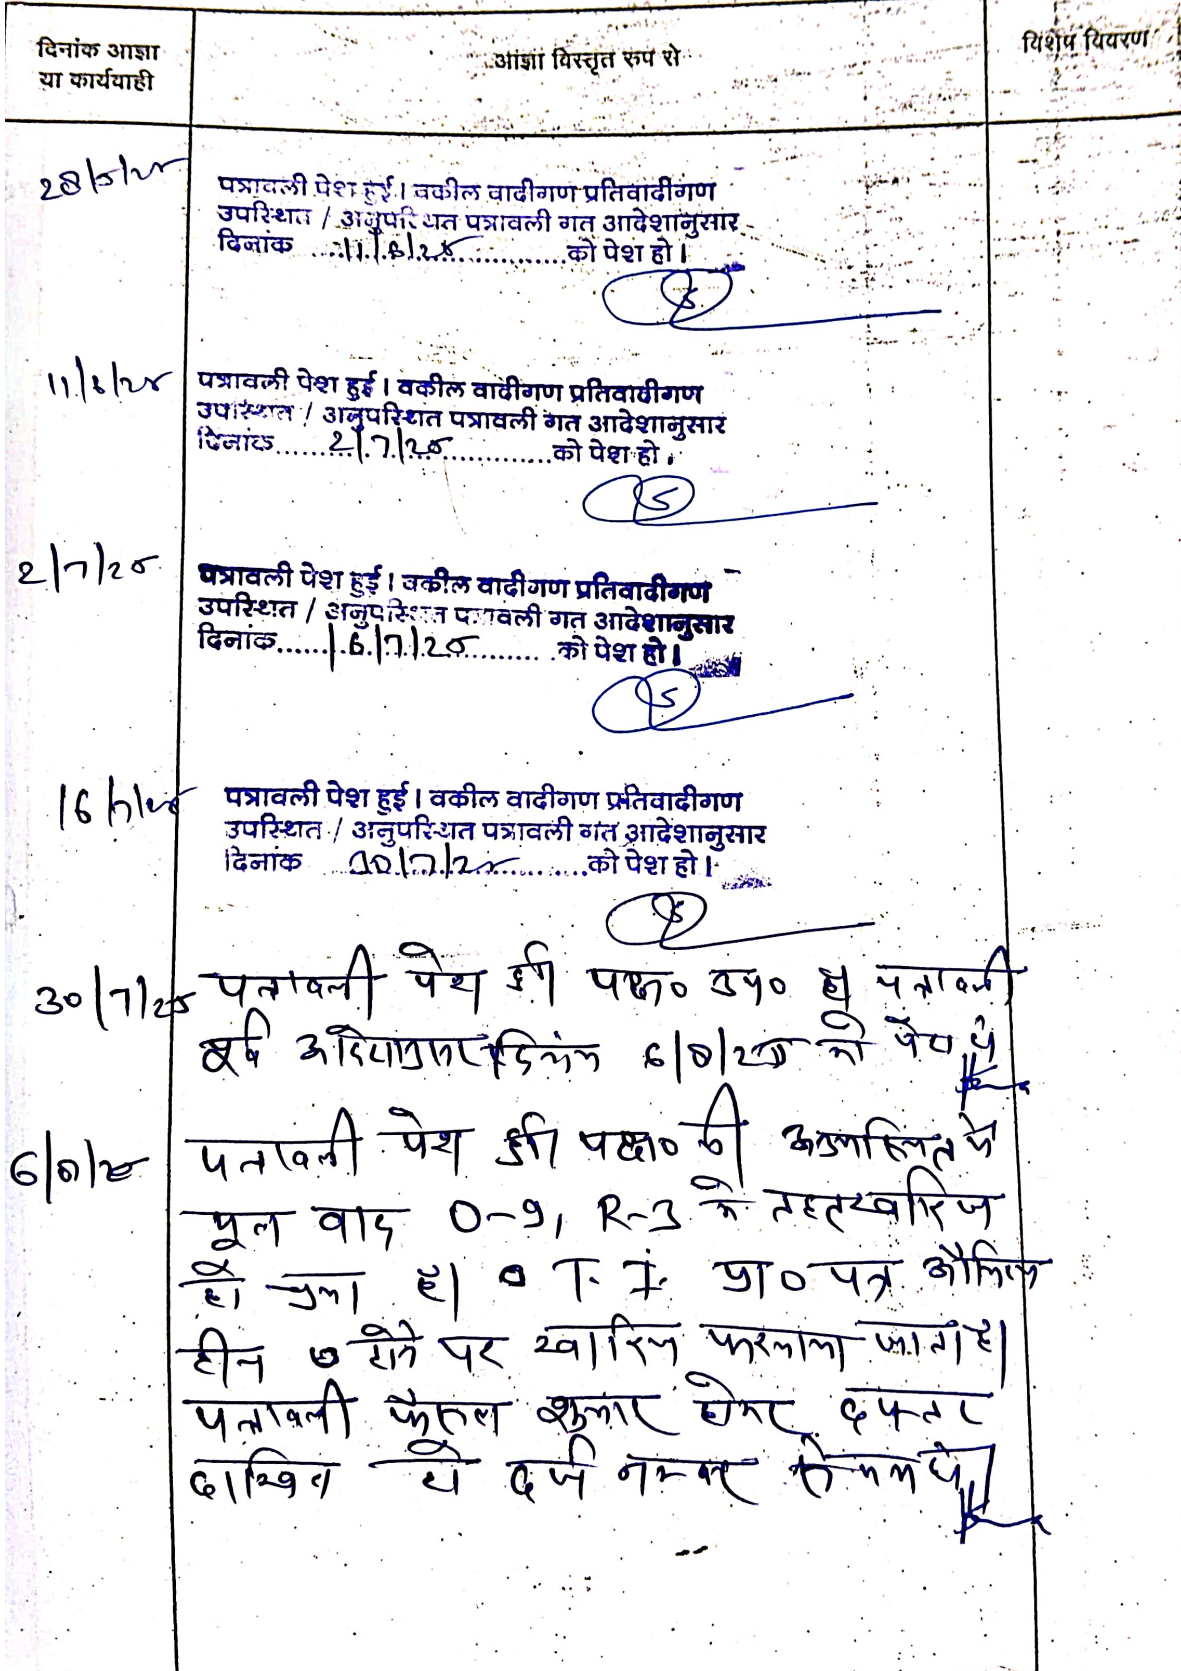 दिनांक आज्ञा
या कार्यवाही
आज्ञा विस्तृत रुप से
विशेष विवरण
28/5/25
पत्रावली पेश हुई। वकील वादीगण प्रतिवादीगण
उपस्थित / अनुपस्थित पत्रावली गत आदेशानुसार
दिनांक ....11/6/25..............को पेश हो।
11/6/25
पत्रावली पेश हुई। वकील वादीगण प्रतिवादीगण
उपस्थित / अनुपस्थित पत्रावली गत आदेशानुसार
दिनांक......2/7/25.............को पेश हो।
2/7/25
पत्रावली पेश हुई। वकील वादीगण प्रतिवादीगण
उपस्थित / अनुपस्थित पत्रावली गत आदेशानुसार
दिनांक......16/7/25.............को पेश हो।
16/7/25
पत्रावली पेश हुई। वकील वादीगण प्रतिवादीगण
उपस्थित / अनुपस्थित पत्रावली गत आदेशानुसार
दिनांक 30/7/25............को पेश हो।
30/7/25 पत्रावली पेश हुई। पक्ष० उप० है। पत्रावली
पूर्व आदेशानुसार दिनांक 6/8/25 को पेश हो
6/8/25 पत्रावली पेश हुई। पक्ष० की अनुपस्थित में
मूल वाद O-9, R-3 के तहत खारिज
हो चुका है। T. I. प्रा० पत्र औचित्य
हीन होने पर खारिज फरमाया जाता है।
पत्रावली फैसल शुमार होकर दफ्तर
दाखिल हो दर्ज नम्बर से कम हो।